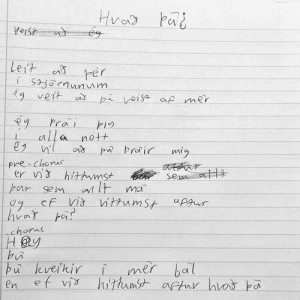 Hvað þá?
veist að ég
Leit að þér
í stjörnunum
ég veit að þú veist af mér
ég þrái þig
í alla nótt
ég vil að þú þráir mig
pre-chorus
er við hittumst aftur
þar sem allt má sem allt
og ef við hittumst aftur
hvað þá?
chorus
H@Y
þú
þú kveikir í mér bál
en ef við hittumst aftur hvað þá